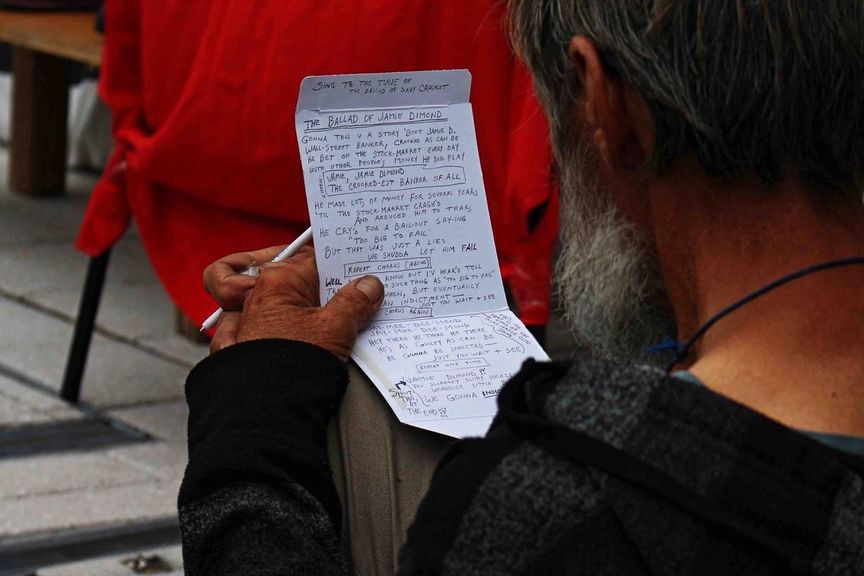 SING TO THE TUNE OF
THE BALLAD OF DAVY CROCKET
THE BALLAD OF JAMIE DIMOND
GONNA TELL U A STORY 'BOUT JAMIE D.
WALL-STREET BANKER, CROOKED AS CAN BE
HE BET ON THE STOCK-MARKET EVERY DAY
WITH OTHER PEOPLE'S MONEY HE DID PLAY
CHORUS
JAMIE, JAMIE DIMOND
THE CROOKED-EST BANKER OF ALL
HE MADE LOTS OF MONEY FOR SEVERAL YEARS
'TIL THE STOCK-MARKET CRASH'D
AND REDUCED HIM TO TEARS
HE CRY'D FOR A BAIL-OUT SAY-ING
"TOO BIG TO FAIL"
BUT THAT WAS JUST A LIE;
WE SHUDDA LET HIM FAIL
REPEAT CHORUS (ABOVE)
WELL KNOW BUT I'V HEAR'D TELL
NO SUCH THING AS "TOO BIG TO FAIL"
WHEN, BUT EVENTUALLY
AN INDICTMENT
JUST YOU WAIT + SEE
CHORUS AGAIN
JAI-MEE-DEE-MOND
JAY-MEE-DEE-MOND
HEY THERE HI THERE HO THERE
HE'S AS GUILTY AS CAN BE
HE GONNA BE INDICTED
JUST YOU WAIT + SEE
REPEAT ONE TIME
JAMIE DIMOND!!
YOU SLIMEY SLEAZY
WEASELY LITTLE
WE GONNA
SHOUT THIS AT THE END!!